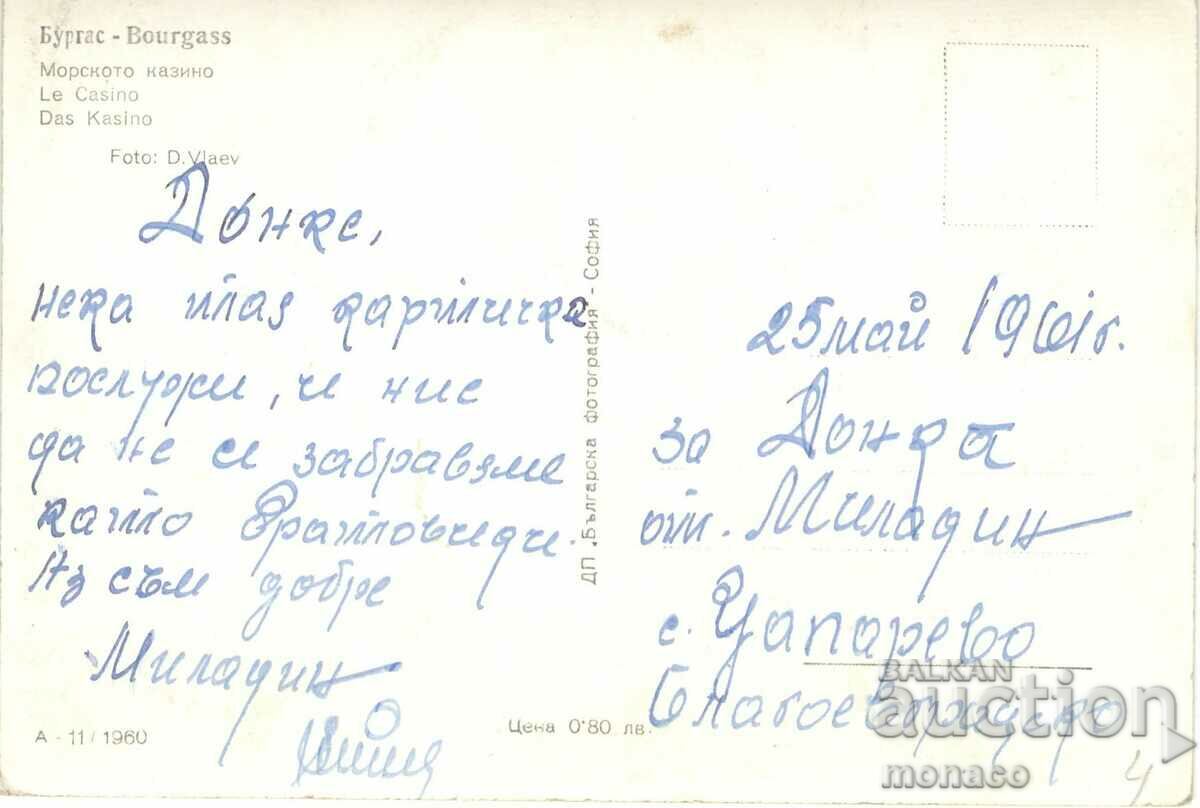 Бургас - Bourgass
Морското казино
Le Casino
Das Kasino
Foto: D. Vlaev
Донке,
нека тая картичка
послужи, че ние
да не се забравяме
като братовчеди.
Аз съм добре
Миладин
А - 11 / 1960
Цена 0'80 лв.
ДП „Българска фотография" - София
25 май 1961 г.
за Донка
от. Миладин
с. Цапарево
Благоевградско
4
BALKAN
auction
monaco